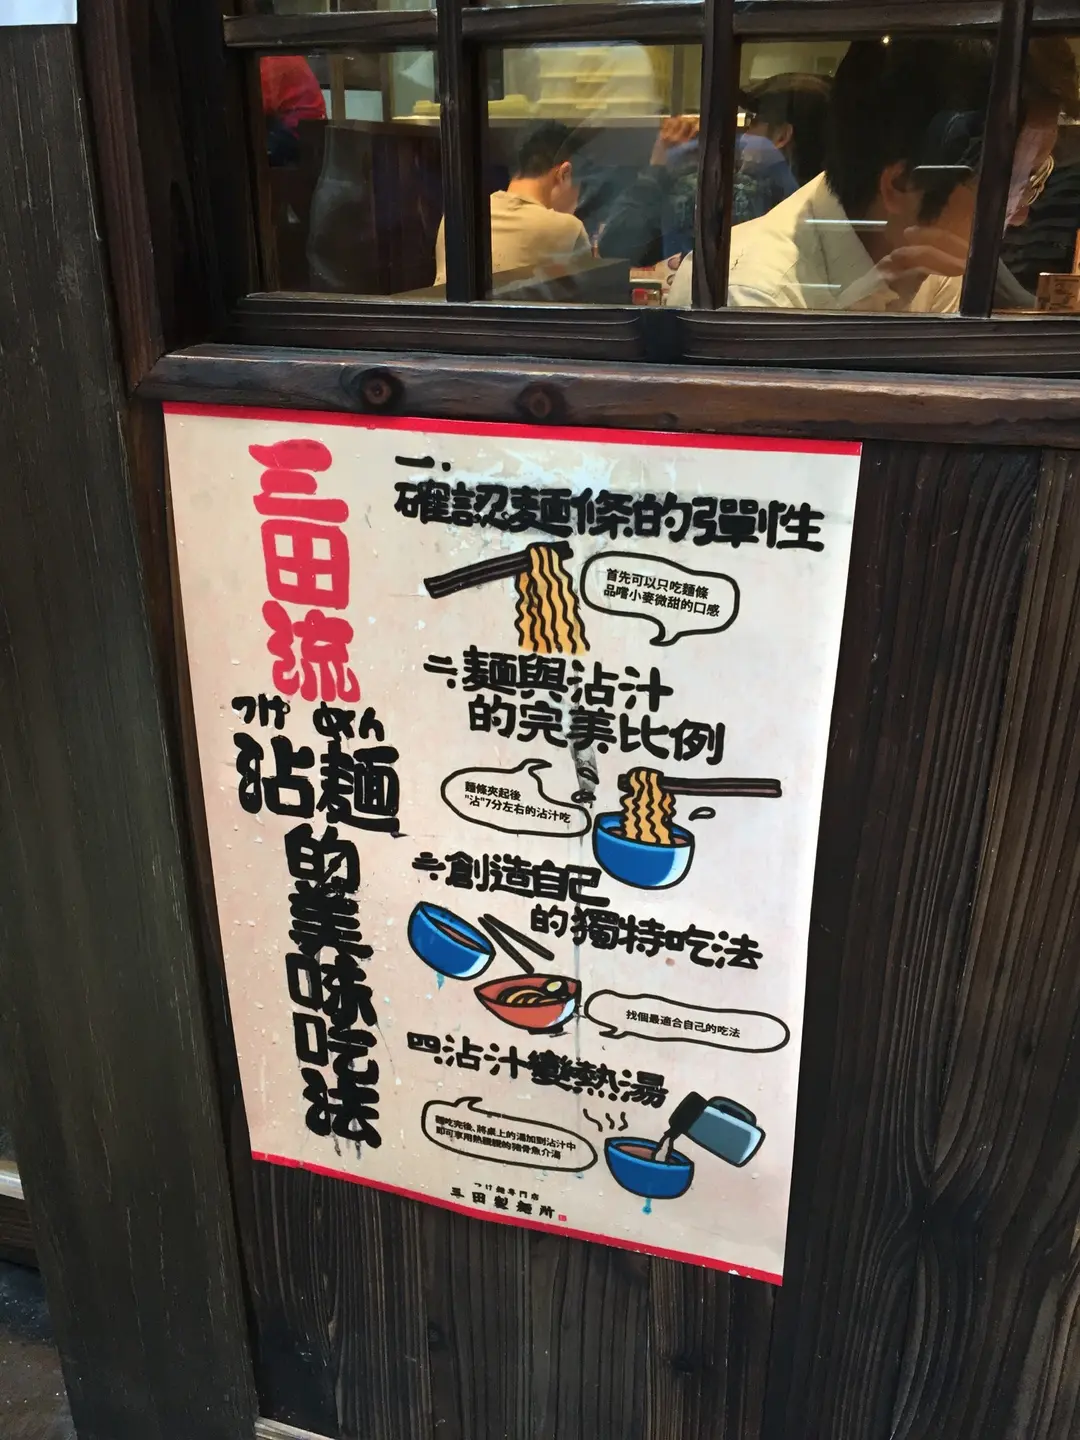 三田流
つけ めん
沾麵
的美味吃法
一.
確認麵條的彈性
首先可以只吃麵條
品嚐小麥微甜的口感
二.麵與沾汁
的完美比例
麵條夾起後
"沾"7分左右的沾汁吃
三.創造自己
的獨特吃法
找個最適合自己的吃法
四.沾汁變熱湯
麵吃完後、將桌上的湯加到沾汁中
即可享用熱騰騰的豬骨魚介湯
つけ麺専門店
三田製麺所